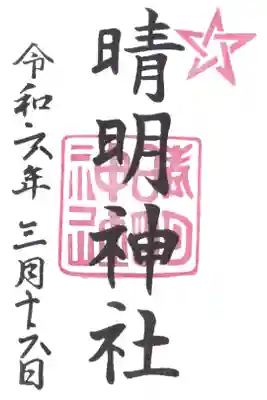 晴明神社
令和六年 三月十六日
晴明神社